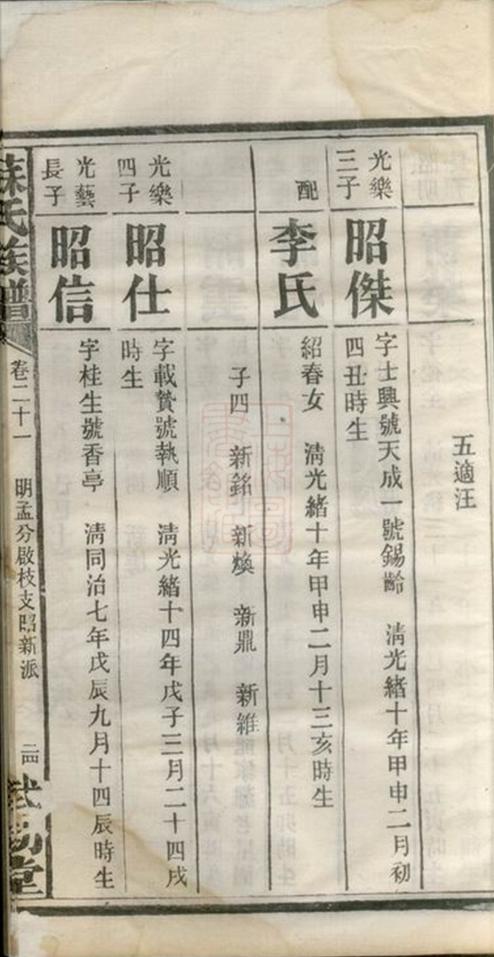 五適汪
光樂三子
昭傑
字士興號天成一號錫齡 清光緒十年甲申二月初
四丑時生
配
李氏
紹春女 清光緒十年甲申二月十三亥時生
子四 新銘 新煥 新鼎 新維
光樂四子
昭仕
字載贄號執順 清光緒十四年戊子三月二十四戌
時生
光藝長子
昭信
字桂生號香亭 清同治七年戊辰九月十四辰時生
蘇氏族譜
卷二十一
明孟分啟枝支昭新派
二四
武功堂